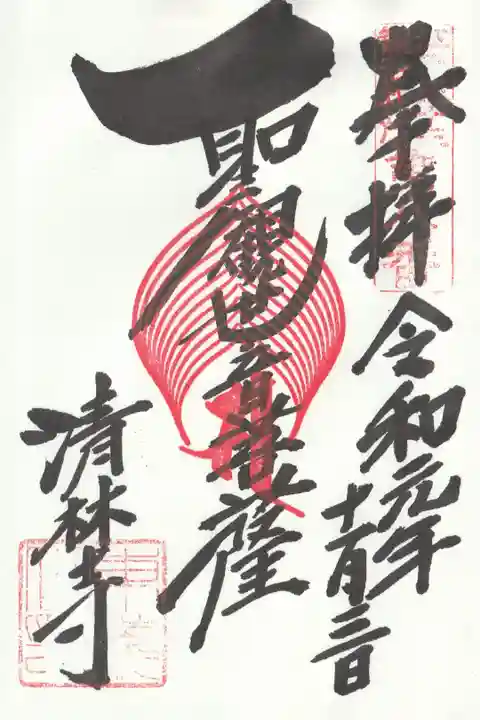 奉拝
令和元年
十月三日
聖観世音菩薩
清林寺